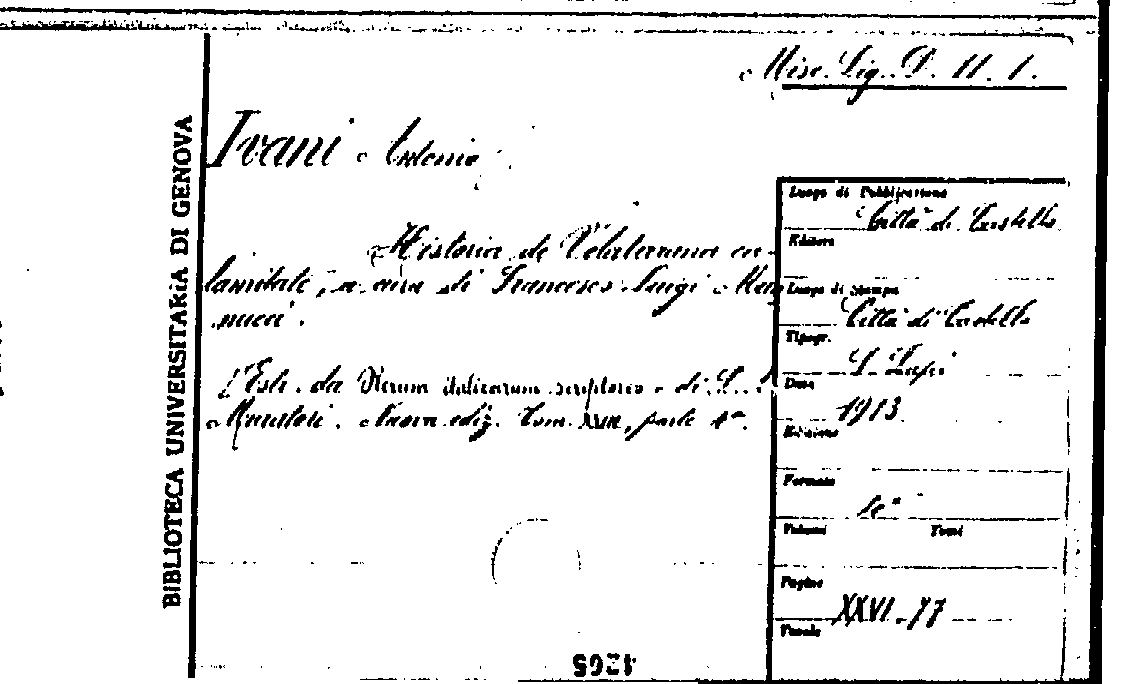 Misc. Lig. D. 11. 1.
Ivani Antonio
Historia de Volaterrana ca-
lamitate, a cura di Francesco Luigi Man
nucci.
Estr. da Rerum italicarum scriptores - di L.
Muratori. Nuova ediz. Tom. XXIII, parte 4ª.
BIBLIOTECA UNIVERSITARIA DI GENOVA
Luogo di Pubblicazione
Città di Castello
Editore
Luogo di Stampa
Città di Castello
Tipogr.
S. Lapi
Data
1913
Edizione
Formato
Volumi Tomi
Pagine
XXVI-77
Tavole